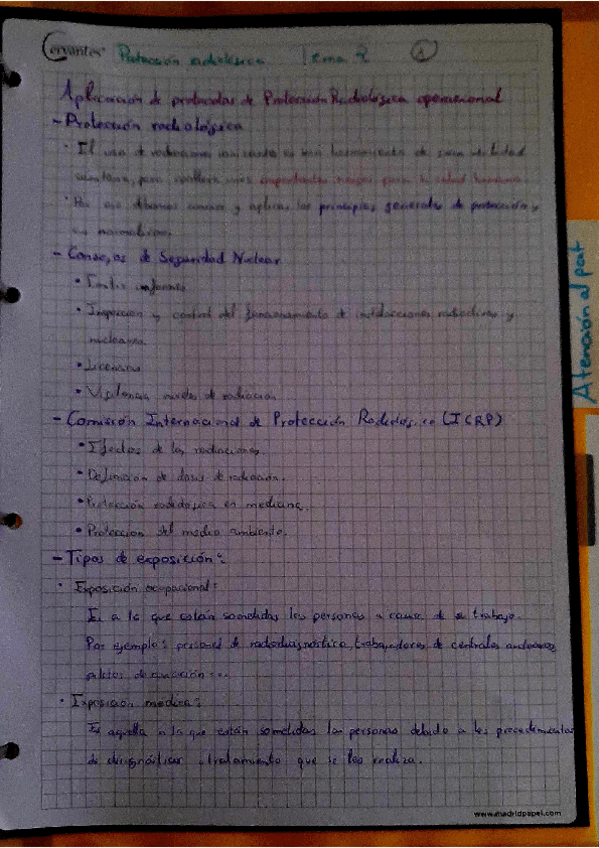 Cervantes Protección radiológica Tema 2 1
Aplicación de protocolos de Protección Radiológica operacional
- Protección radiológica
· El uso de radiaciones ionizantes es una herramienta de gran utilidad
sanitaria, pero conlleva unos importantes riesgos para la salud humana.
· Por eso debemos conocer y aplicar los principios generales de protección y
su normativa.
- Consejo de Seguridad Nuclear
· Emitir informes
· Inspección y control del funcionamiento de instalaciones radiactivas y
nucleares.
· Licencias
· Vigilancia niveles de radiación
- Comisión Internacional de Protección Radiológica (ICRP)
· Efectos de las radiaciones.
· Definición de dosis de radiación.
· Protección radiológica en medicina.
· Protección del medio ambiente.
- Tipos de exposición:
· Exposición ocupacional:
Es a la que están sometidas las personas a causa de su trabajo.
Por ejemplo: personal de radiodiagnóstico, trabajadores de centrales nucleares,
pilotos de aviación...
· Exposición médica:
Es aquella a la que están sometidas las personas debido a los procedimientos
de diagnóstico o tratamiento que se les realiza.
www.madridpapel.com
Atención al pat